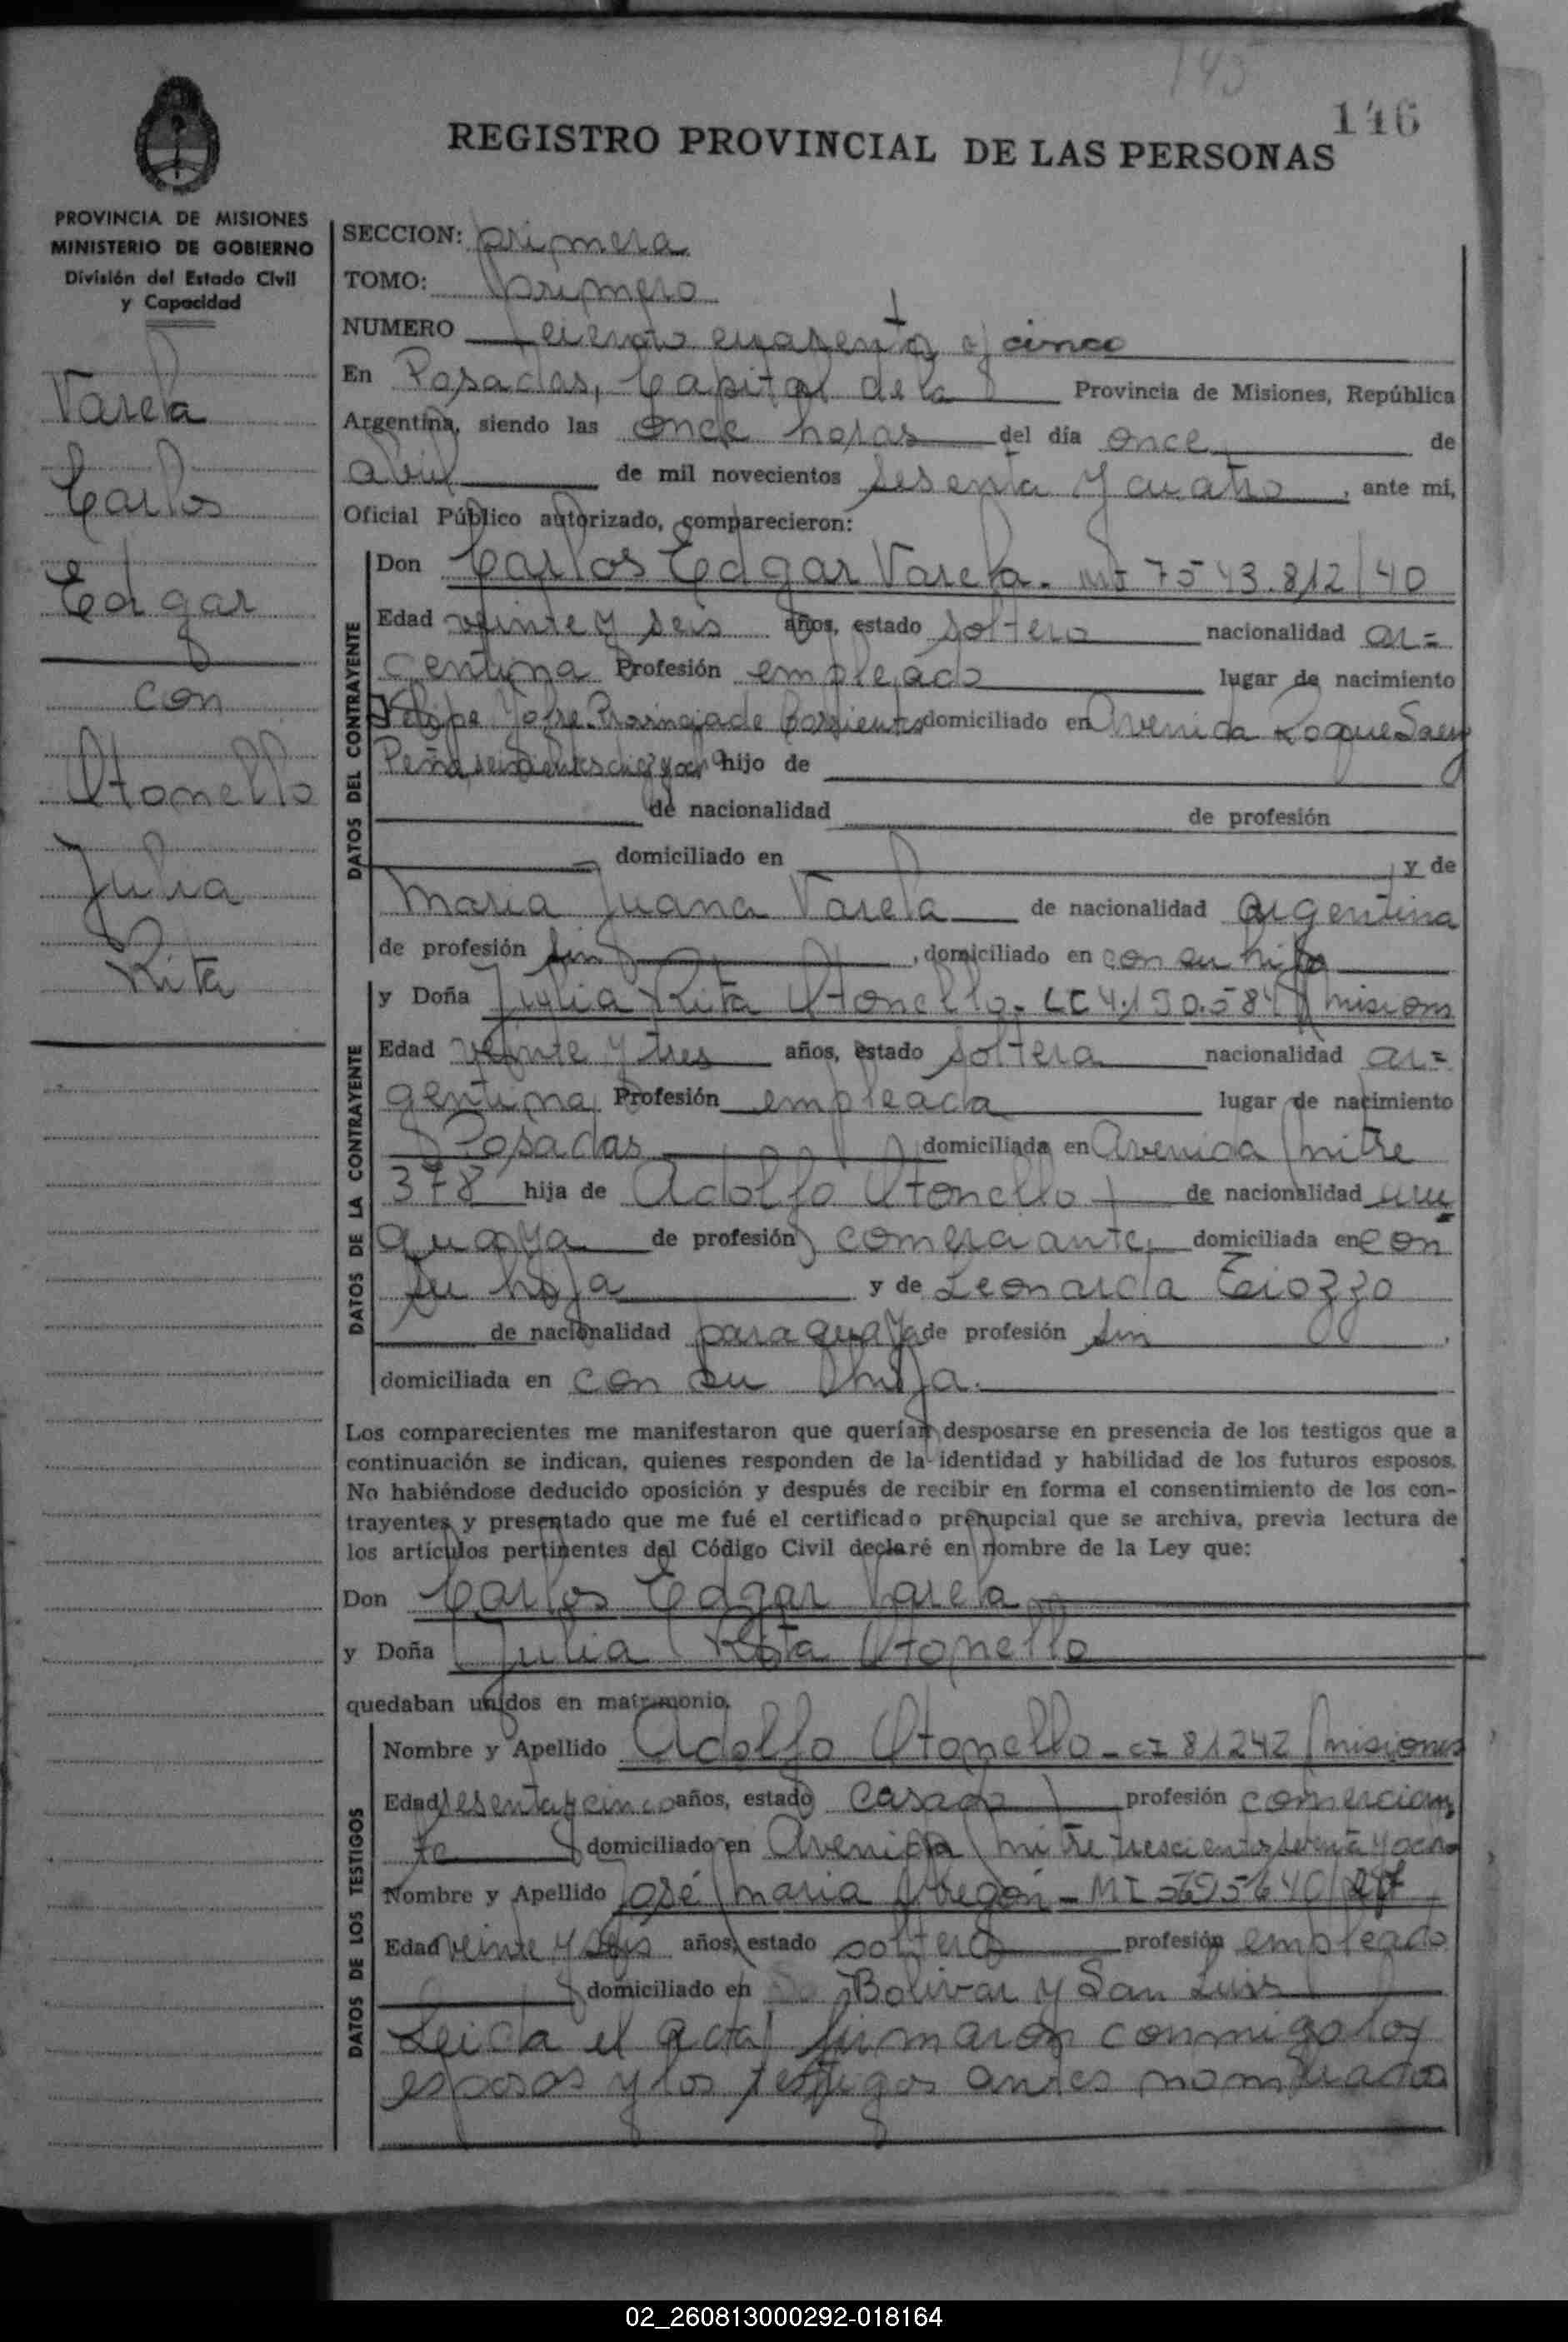 145
146
REGISTRO PROVINCIAL DE LAS PERSONAS
PROVINCIA DE MISIONES
MINISTERIO DE GOBIERNO
División del Estado Civil
y Capacidad
Varela
Carlos
Edgar
con
Otonello
Julia
Rita
SECCION: primera
TOMO: primero
NUMERO ciento cuarenta y cinco
En Posadas, Capital de la Provincia de Misiones, República
Argentina, siendo las once horas del día once de
abril de mil novecientos sesenta y cuatro, ante mi,
Oficial Público autorizado, comparecieron:
DATOS DEL CONTRAYENTE
Don Carlos Edgar Varela. MI 7543.812/40
Edad veinte y seis años, estado soltero nacionalidad ar=
gentina Profesión empleado lugar de nacimiento
Felipe Yofre Provincia de Corrientes domiciliado en Avenida Roque Saenz
Peña seiscientos diez y ocho hijo de
de nacionalidad de profesión
domiciliado en y de
Maria Juana Varela de nacionalidad argentina
de profesión sin, domiciliado en con su hijo
DATOS DE LA CONTRAYENTE
y Doña Julia Rita Otonello. LC 4.190.584 misiones
Edad veinte y tres años, estado soltera nacionalidad ar=
gentina Profesión empleada lugar de nacimiento
Posadas domiciliada en Avenida mitre
378 hija de Adolfo Otonello de nacionalidad uru
guaya de profesión comerciante, domiciliada en con
su hija y de Leonarda
de nacionalidad paraguaya de profesión sin,
domiciliada en con su hija.
Los comparecientes me manifestaron que querían desposarse en presencia de los testigos que a
continuación se indican, quienes responden de la identidad y habilidad de los futuros esposos.
No habiéndose deducido oposición y después de recibir en forma el consentimiento de los con-
trayentes y presentado que me fué el certificado prenupcial que se archiva, previa lectura de
los artículos pertinentes del Código Civil declaré en nombre de la Ley que:
Don Carlos Edgar Varela
y Doña Julia Rita Otonello
quedaban unidos en matrimonio.
DATOS DE LOS TESTIGOS
Nombre y Apellido Adolfo Otonello - CI 81242 misiones
Edad sesenta y cinco años, estado casado profesión comercian
te domiciliado en Avenida mitre trescientos setenta y ocho
Nombre y Apellido José maria Obregón - MI 5695640
Edad veinte y seis años, estado soltero profesión empleado
domiciliado en Bolivar y San Luis
Leida el acta, firmaron conmigo los
esposos y los testigos antes nombrados
02_260813000292-018164